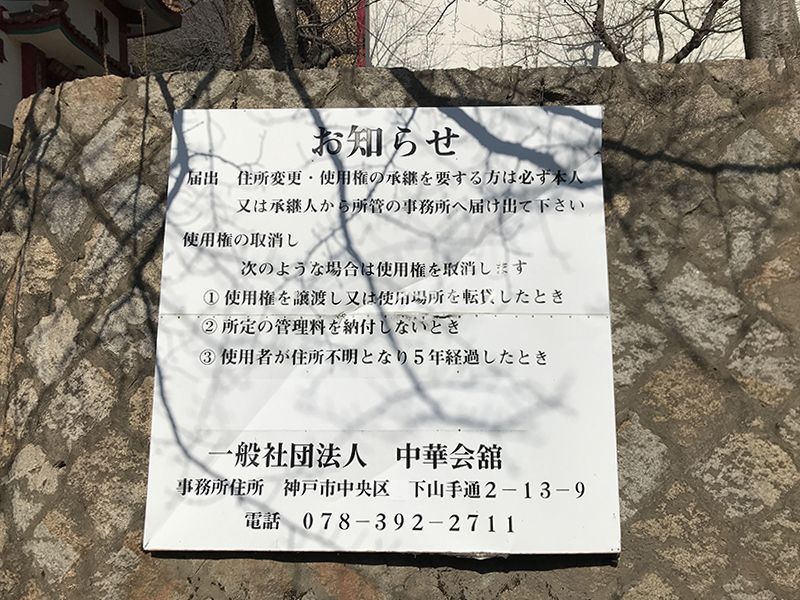 お知らせ
届出　住所変更・使用権の承継を要する方は必ず本人
又は承継人から所管の事務所へ届け出て下さい
使用権の取消し
次のような場合は使用権を取消します
①使用権を譲渡し又は使用場所を転貸したとき
②所定の管理料を納付しないとき
③使用者が住所不明となり５年経過したとき
一般社団法人　中華会舘
事務所住所　神戸市中央区　下山手通２－１３－９
電話　０７８－３９２－２７１１